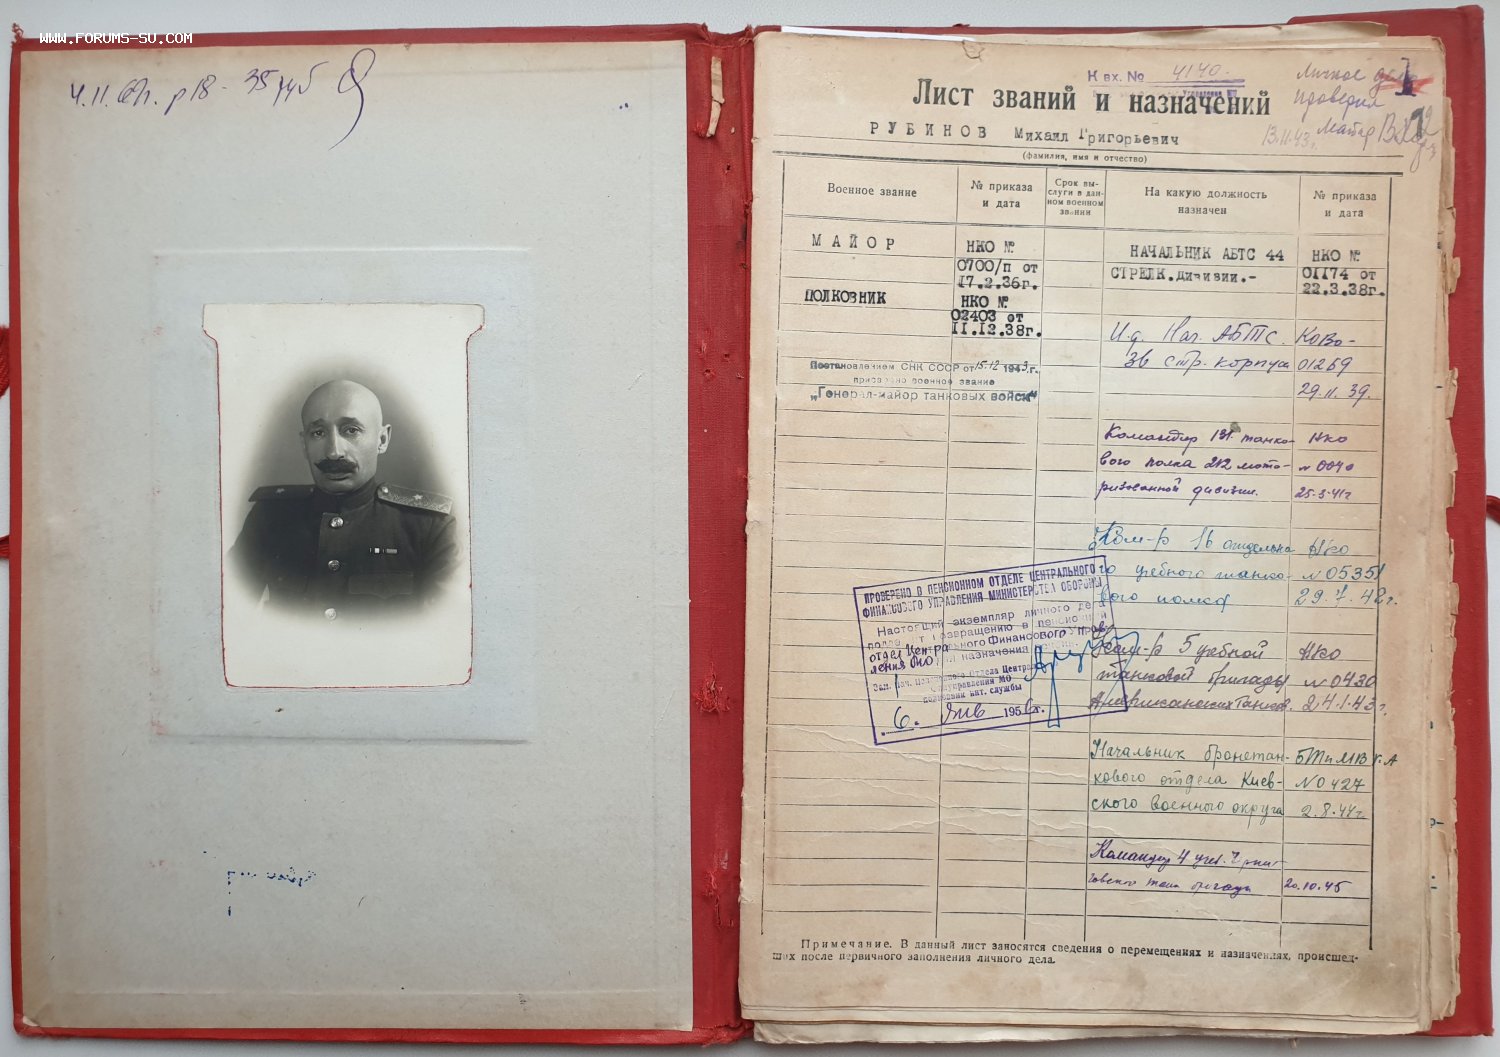 WWW.FORUMS-SU.COM
К вх. № 4140
Личное дело
проверил
13.11.43г. Майор
Лист званий и назначений
РУБИНОВ Михаил Григорьевич
(фамилия, имя и отчество)
Военное звание
№ приказа и дата
Срок выслуги в данном военном звании
На какую должность назначен
№ приказа и дата
МАЙОР НКО № НАЧАЛЬНИК АБТС 44 НКО №
0700/п от СТРЕЛК.дивизии.- 01174 от
17.2.36г. 22.3.38г.
ПОЛКОВНИК НКО №
02403 от
11.12.38г.
И.д. Нач. АБТС. КОВО-
36 стр. корпуса 01259
29.11.39.
Постановлением СНК СССР от 15.12 1943 г.
присвоено военное звание
„Генерал-майор танковых войск"
Командир 131 танко- НКО
вого полка 212 мото- № 0040
ризованной дивизии. 25.3.41г
Ком-р 16 отдельно НКО
го учебного танко- № 05351
вого полка 29.7.42г.
ПРОВЕРЕНО В ПЕНСИОННОМ ОТДЕЛЕ ЦЕНТРАЛЬНОГО
ФИНАНСОВОГО УПРАВЛЕНИЯ МИНИСТЕРСТВА ОБОРОНЫ
Настоящий экземпляр личного дела
возвращению в пенсионный
отдел Центрального Финансового Управ-
ления МО назначения
Зам. Нач. Пенсионного Отдела Централ
Финуправления МО
полковник инт. службы
6. Янв 1956г.
Ком-р 5 учебной НКО
танковой бригады № 0430
Американских танков. 24.1.43г.
Начальник бронетан- БТиМВ К.А
кового отдела Киев- № 0427
ского военного округа 2.8.44г.
Командир 4 учеб.
танк бригады 20.10.45
Примечание. В данный лист заносятся сведения о перемещениях и назначениях, происшед-
ших после первичного заполнения личного дела.